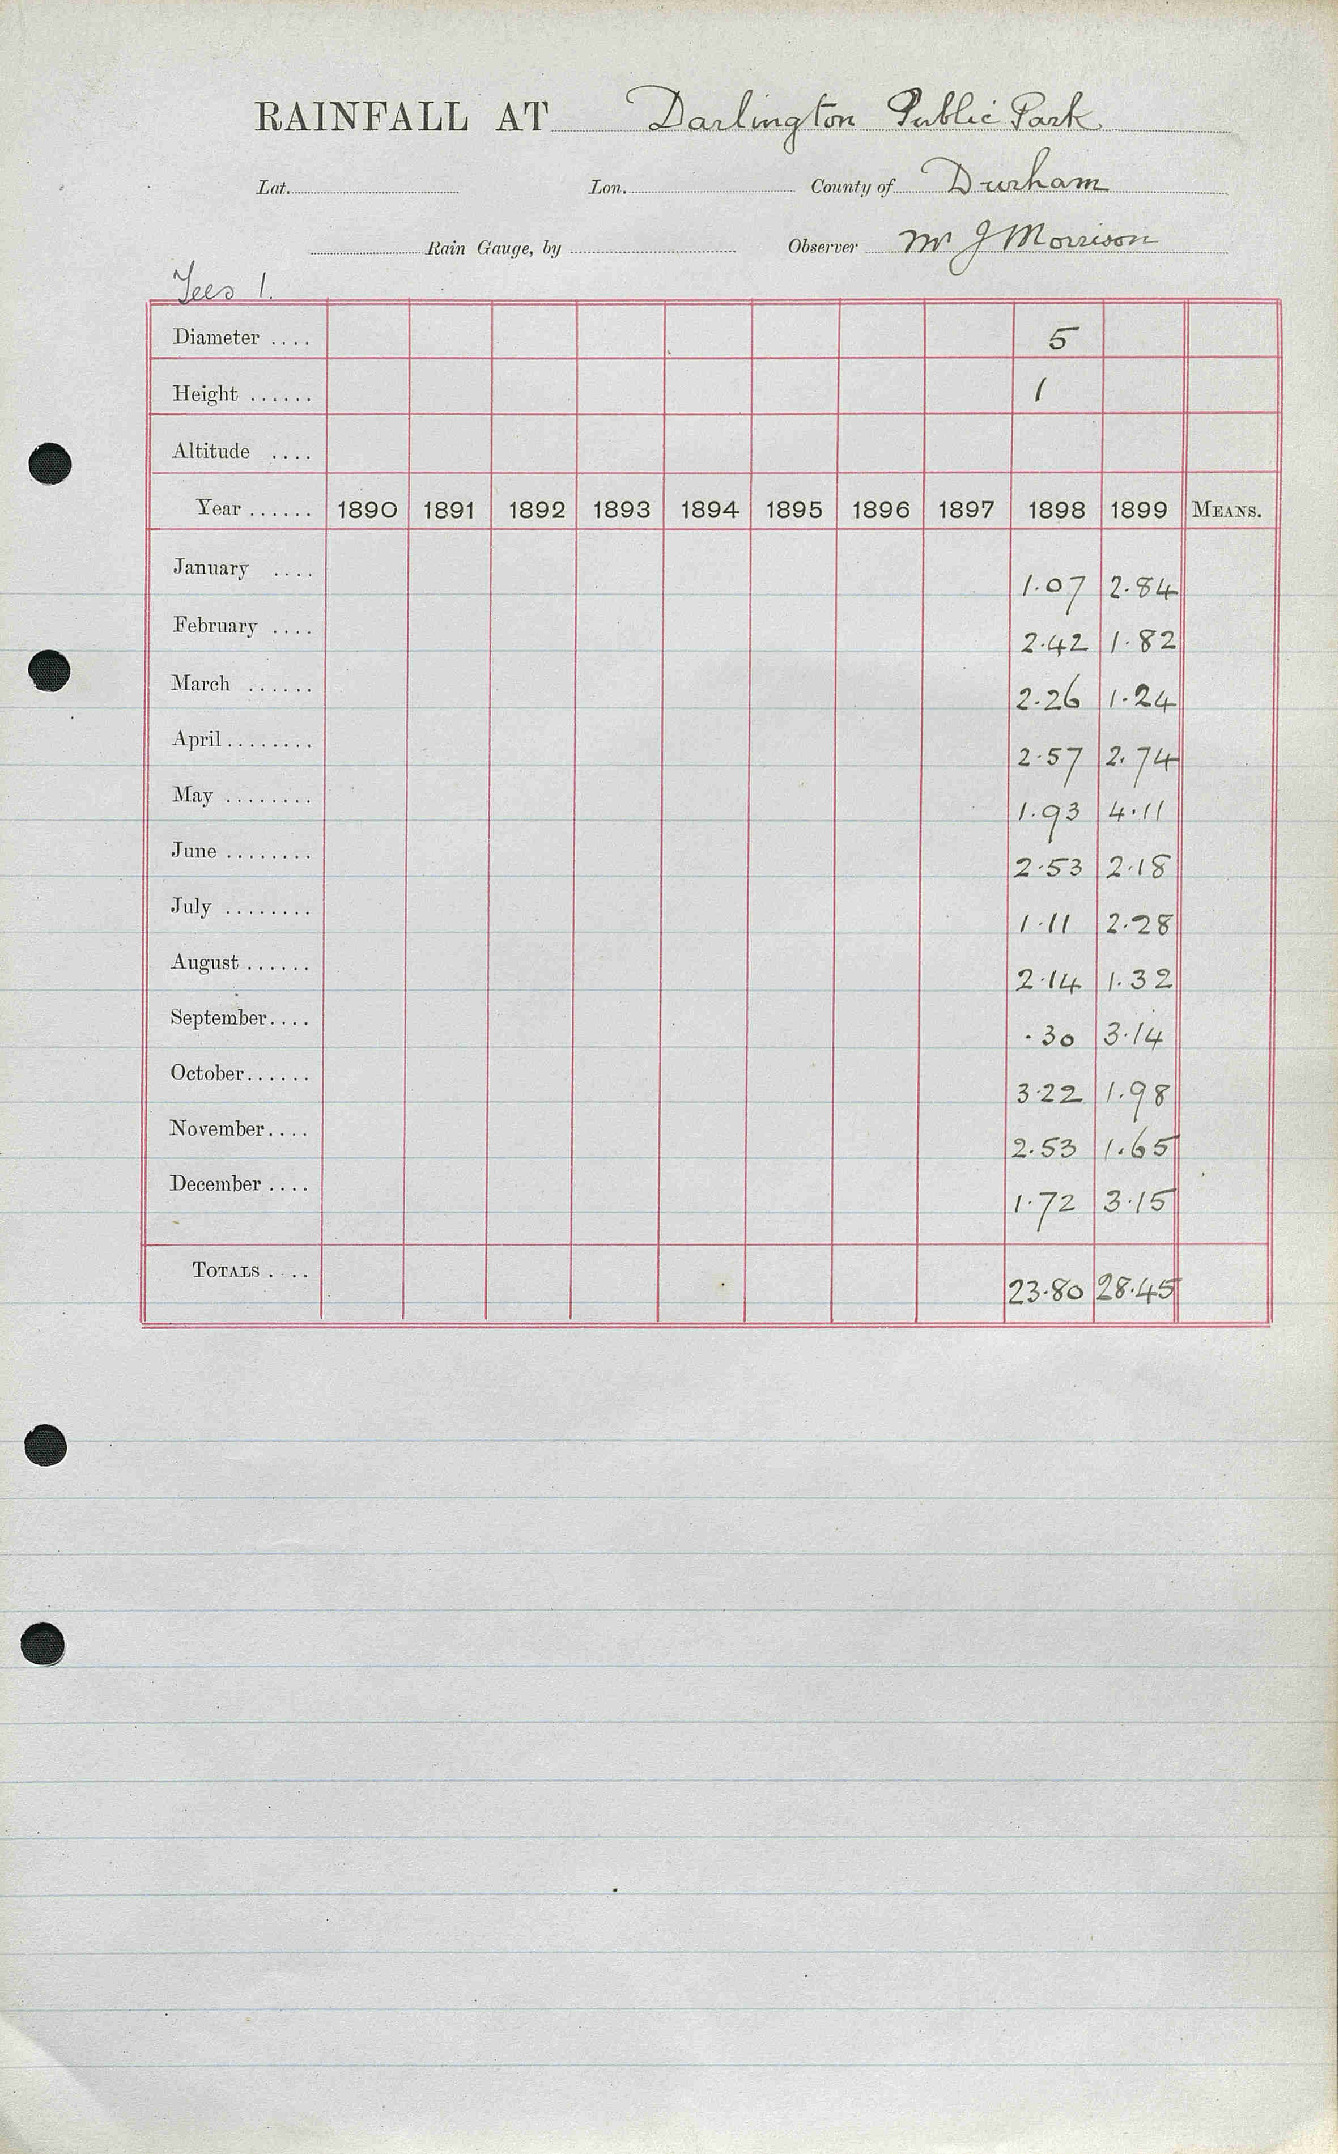 RAINFALL AT Darlington Public Park
Lat. Lon. County of Durham
Rain Gauge, by Observer Mr J Morrison
Tees 1.
Diameter .... 5
Height ...... 1
Altitude ....
Year ...... 1890 1891 1892 1893 1894 1895 1896 1897 1898 1899 MEANS.
January .... 1.07 2.84
February .... 2.42 1.82
March ...... 2.26 1.24
April ........ 2.57 2.74
May ........ 1.93 4.11
June ........ 2.53 2.18
July ........ 1.11 2.28
August ...... 2.14 1.32
September.... .30 3.14
October...... 3.22 1.98
November.... 2.53 1.65
December .... 1.72 3.15
TOTALS .... 23.80 28.45